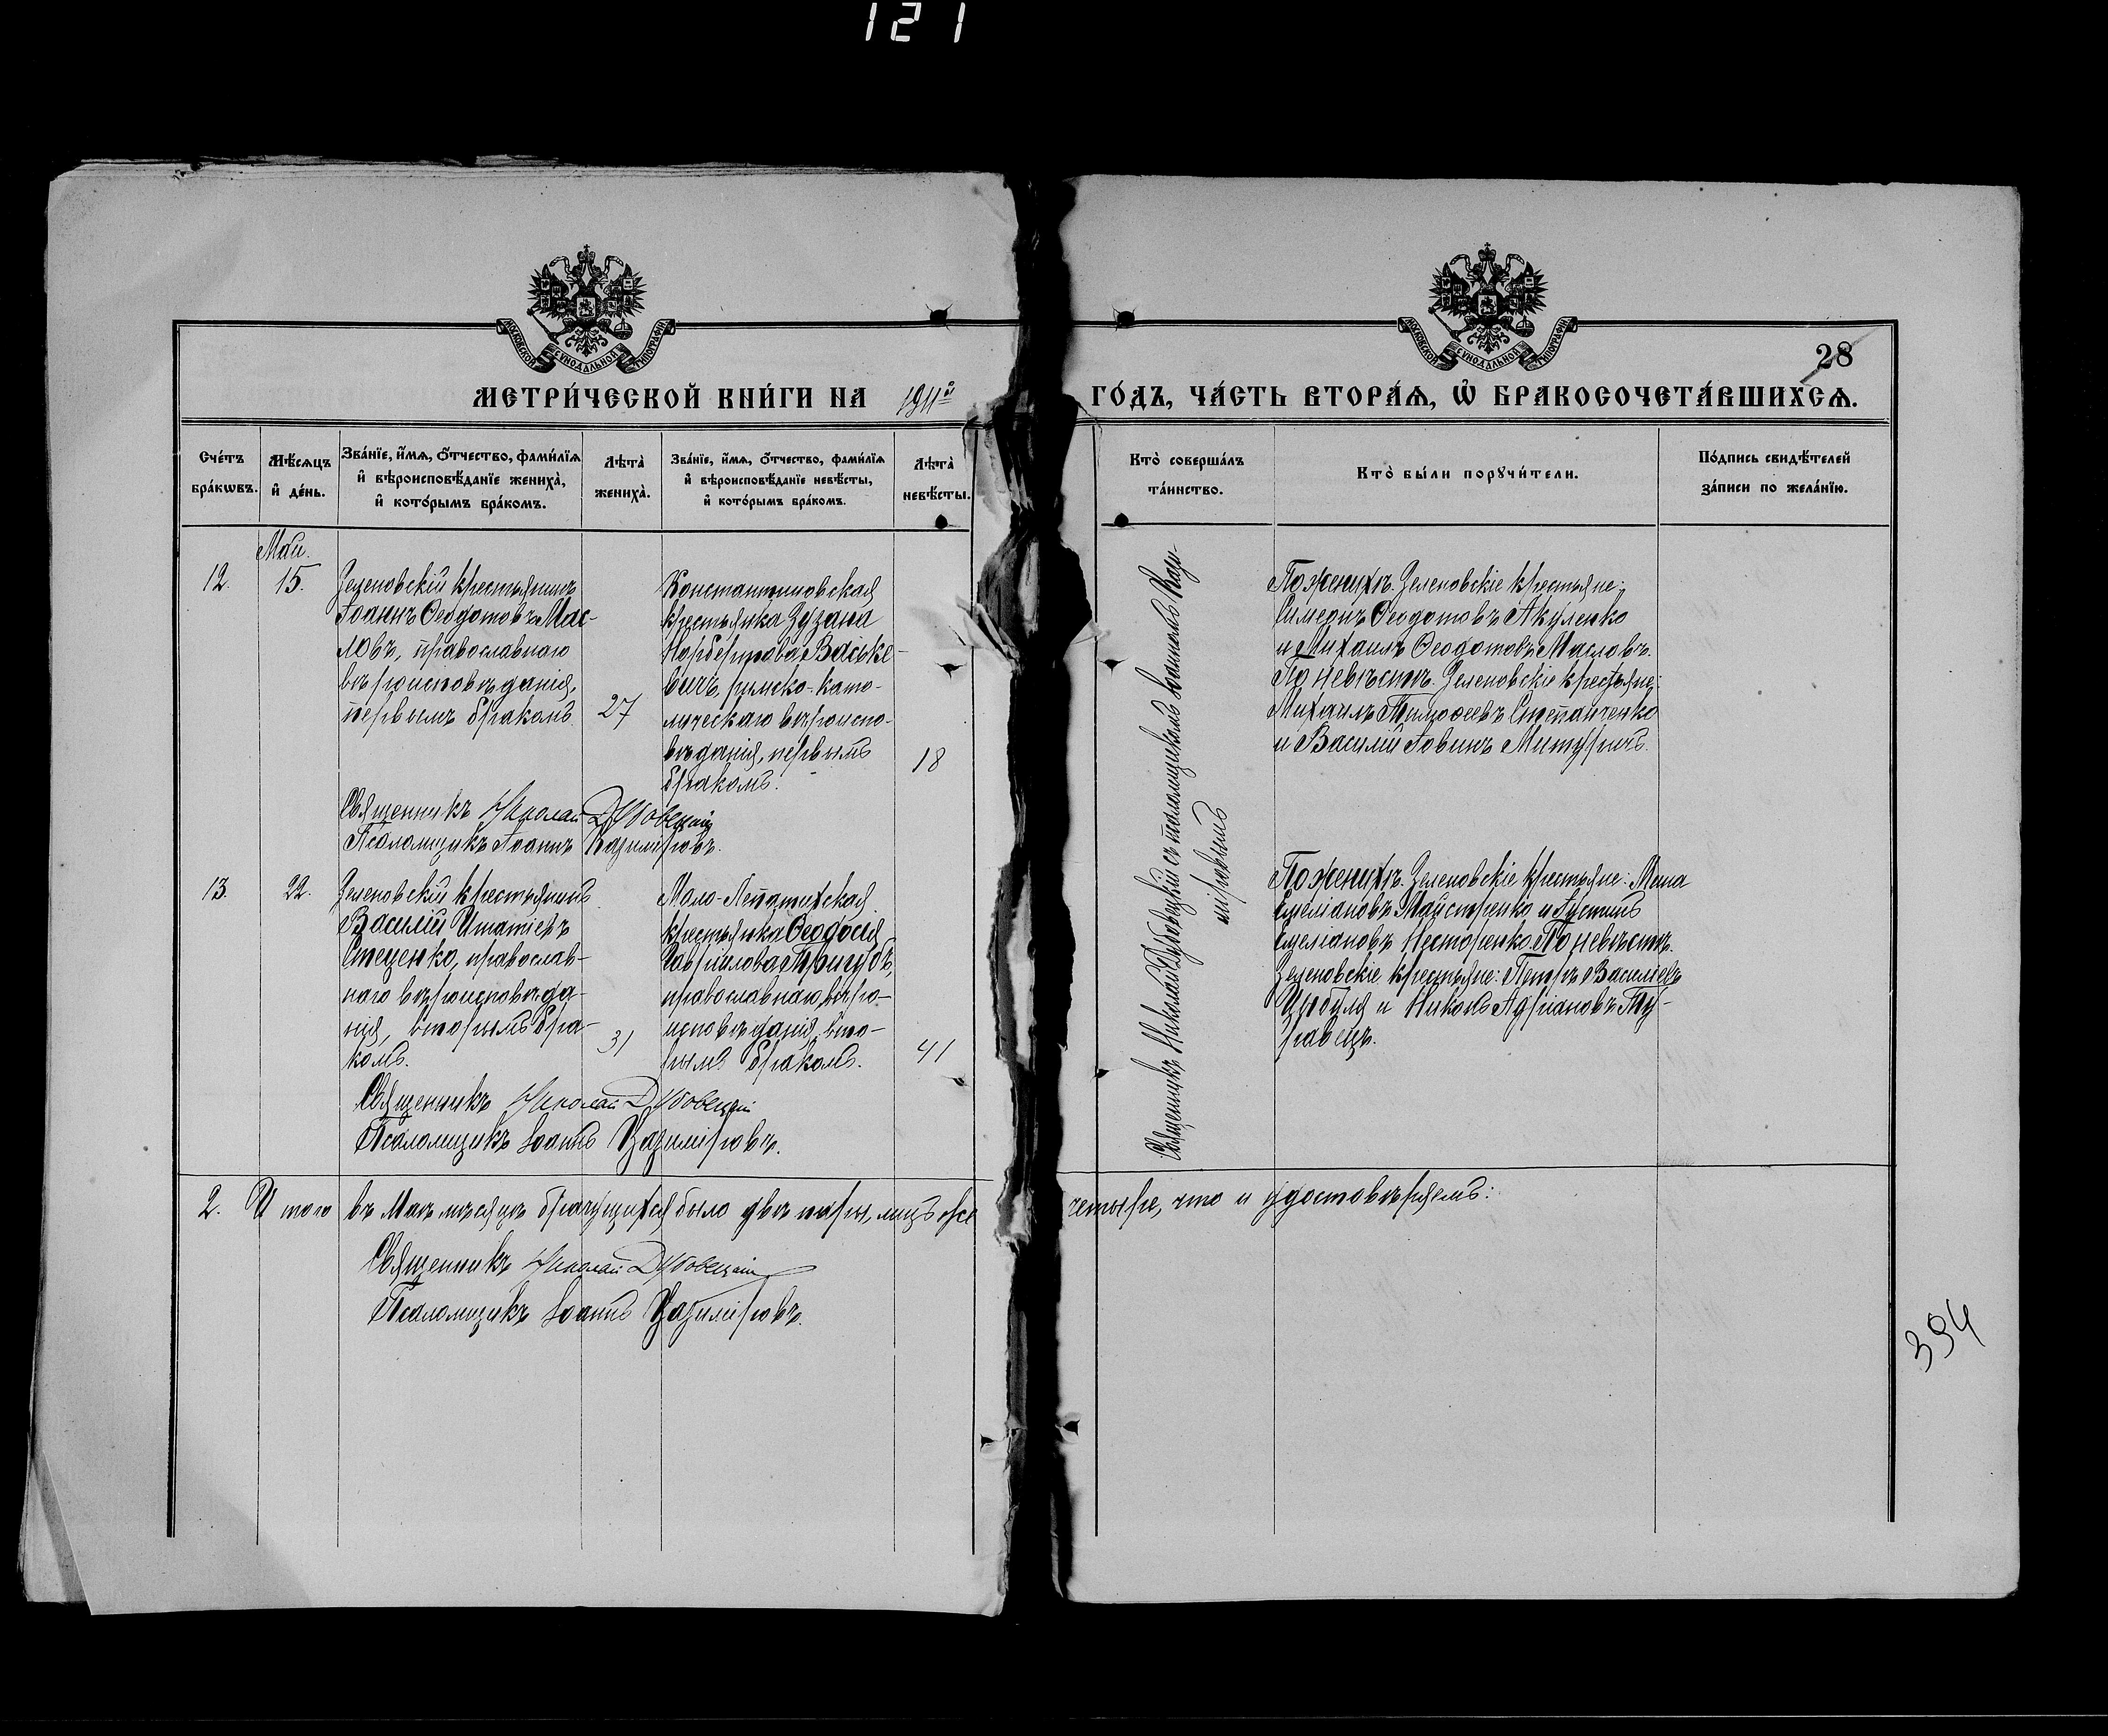 121
МОСКОВСКОЙ СѴНОДАЛЬНОЙ ТИПОГРАФІИ
МОСКОВСКОЙ СѴНОДАЛЬНОЙ ТИПОГРАФІИ
28
МЕТРИ́ЧЕСКОЙ КНИ́ГИ НА 1911й ГО́ДЪ, ЧА́СТЬ ВТОРА́Ѧ, Ѽ БРАКОСОЧЕТА́ВШИХСѦ.
Сче́тъ
бра́кѡвъ.
Мѣ́сѧцъ
и҆ де́нь.
Зва́нїе, и҆́мѧ, ѻ҆́тчество, фами́лїѧ
и҆ вѣроисповѣ́данїе жениха̀,
и҆ кото́рымъ бра́комъ.
Лѣта̀
жениха̀.
Зва́нїе, и҆́мѧ, ѻ҆́тчество, фами́лїѧ
и҆ вѣроисповѣ́данїе невѣ́сты,
и҆ кото́рымъ бра́комъ.
Лѣта̀
невѣ́сты.
Кто̀ соверша́лъ
та́инство.
Кто̀ бы́ли порꙋчи́тели.
По́дпись свидѣ́телей
за́писи по жела́нїю.
Май.
12.
15.
Зеленовскій крестьянинъ
Іоаннъ Ѳеодотовъ Мас-
ловъ, православнаго
вѣроисповѣданія,
первымъ бракомъ.
27
Константиновская
крестьянка Зузана
Норбертова Ваське-
вичъ, римско-като-
лическаго вѣроиспо-
вѣданія, первымъ
бракомъ.
18
Священникъ Николай Дубовецкій съ псаломщикомъ Іоанномъ Кази-
міровымъ
По женихѣ: Зеленовскіе крестьяне:
Симеонъ Ѳеодотовъ Акуленко
и Михаилъ Ѳеодотовъ Масловъ.
По невѣстѣ: Зеленовскіе крестьяне:
Михаилъ Тимоѳеевъ Степанченко
и Василій Іовинъ
Священникъ Николай Дубовецкій
Псаломщикъ Іоаннъ Казиміровъ.
13.
22.
Зеленовскій крестьянинъ
Василій Игнатіевъ
Стеценко, православ-
наго вѣроисповѣда-
нія, вторымъ бра-
комъ.
31
Мало-Лепатихская
крестьянка Ѳеодосія
Гавріилова Тригубъ,
православнаго вѣро-
исповѣданія, вто-
рымъ бракомъ.
41
По женихѣ: Зеленовскіе крестьяне:
Емеліановъ Майстренко и Іустинъ
Емеліановъ Несторенко. По невѣстѣ:
Зеленовскіе крестьяне: Петръ Василіевъ
Цыбуля и Никонъ Адріановъ Ту-
равецъ.
Священникъ Николай Дубовецкій
Псаломщикъ Іоаннъ Казиміровъ.
2. Итого въ Маѣ мѣсяцѣ брачущихся было двѣ пары, лицъ же четыре, что и удостовѣряемъ:
Священникъ Николай Дубовецкій
Псаломщикъ Іоаннъ Казиміровъ.
394